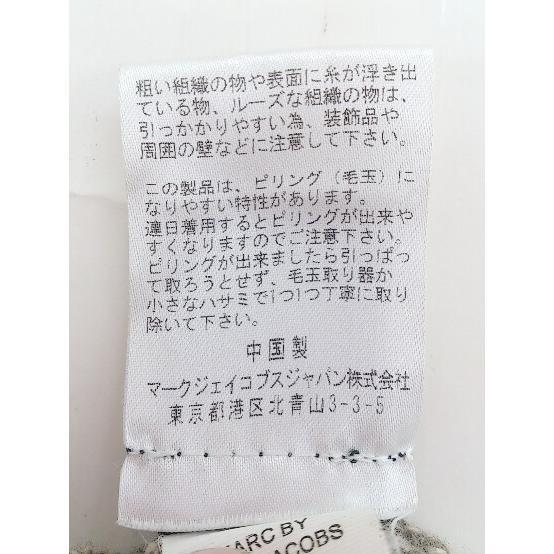 粗い組織の物や表面に糸が浮き出
ている物、ルーズな組織の物は、
引っかかりやすい為、装飾品や
周囲の壁などに注意して下さい。
この製品は、ピリング(毛玉)に
なりやすい特性があります。
連日着用するとピリングが出来や
すくなりますのでご注意下さい。
ピリングが出来ましたら引っぱっ
て取ろうとせず、毛玉取り器か
小さなハサミで1つ1つ丁寧に取り
除いて下さい。
中国製
マークジェイコブスジャパン株式会社
東京都港区北青山3-3-5
MARC BY
JACOBS